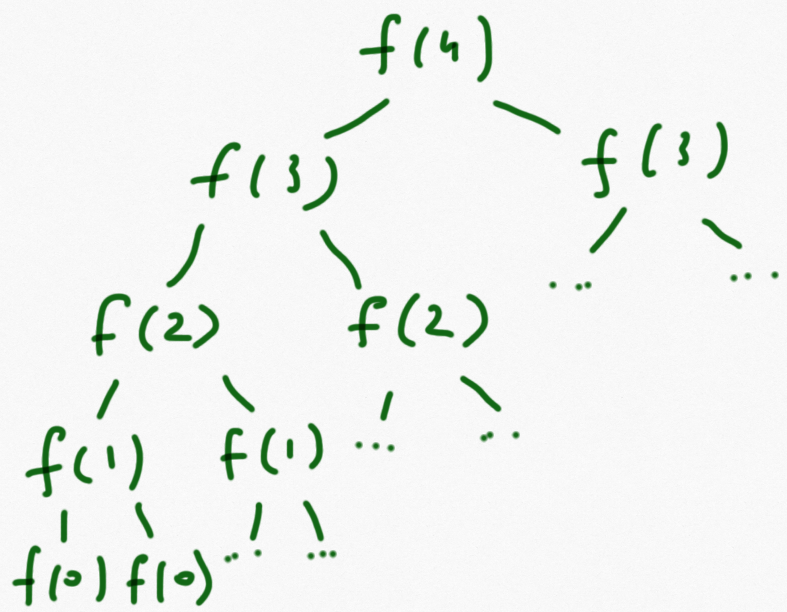 f(4)
f(3) f(3)
... ...
f(2) f(2)
f(1) f(1) ... ...
f(0) f(0) ... ...